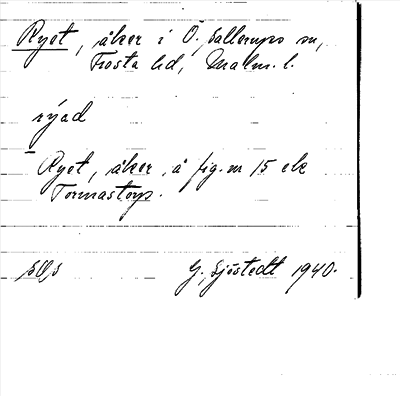 Ryet, åker i Ö. Sallerups sn,
Frosta hd, Malm. l.
rýad
Ryet, åker, å fig. nr 15 ele
Tormastorp.
G. Sjöstedt 1940.